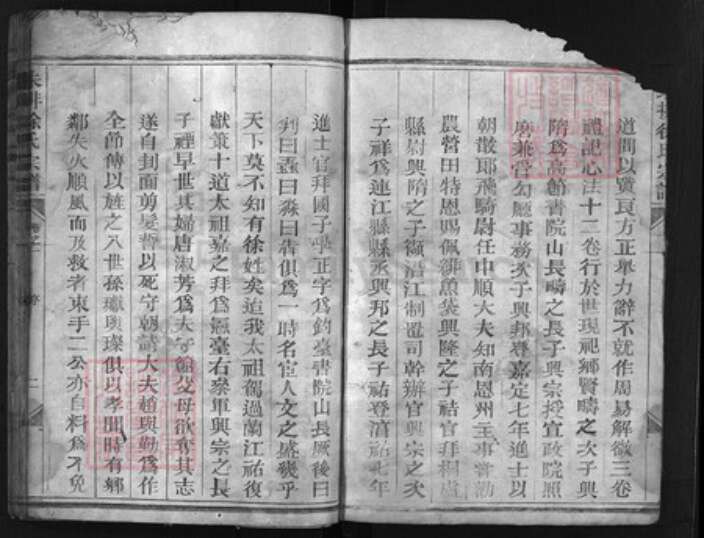 道間以賢良方正舉力辭不就作周易解微三卷
禮記心法十二卷行於世現祀鄉賢疇之次子興
隋爲高節書院山長疇之長子興宗授宣政院照
磨兼管勾廳事務次子興邦登嘉定七年進士以
朝散郎飛騎尉任中順大夫知南恩州主事常勸
農營田特恩賜佩緋魚袋興隆之子祜官拜桐廬
縣尉興隋之子 沿江制置司幹辦官興宗之次
子祥爲連江縣縣丞興邦之長子祐登淳祐七年
進士官拜國子 正字爲釣臺書院山長厥後曰
曰蠢曰淼曰犇俱爲一時名宦人文之盛幾乎
天下莫不知有徐姓矣迨我太祖駕過蘭江祐復
獻策十道太祖嘉之拜爲憲臺右叅軍興宗之長
子禋早世其婦唐淑芳爲太守 父母欲奪其志
遂自封面剪髮誓以死守朝請大夫趙與勤爲作
全節傳以旌之八世孫 璵璨俱以孝聞時有鄉
鄰失火順風而及救者束手二公亦自料爲不免
徐氏宗譜